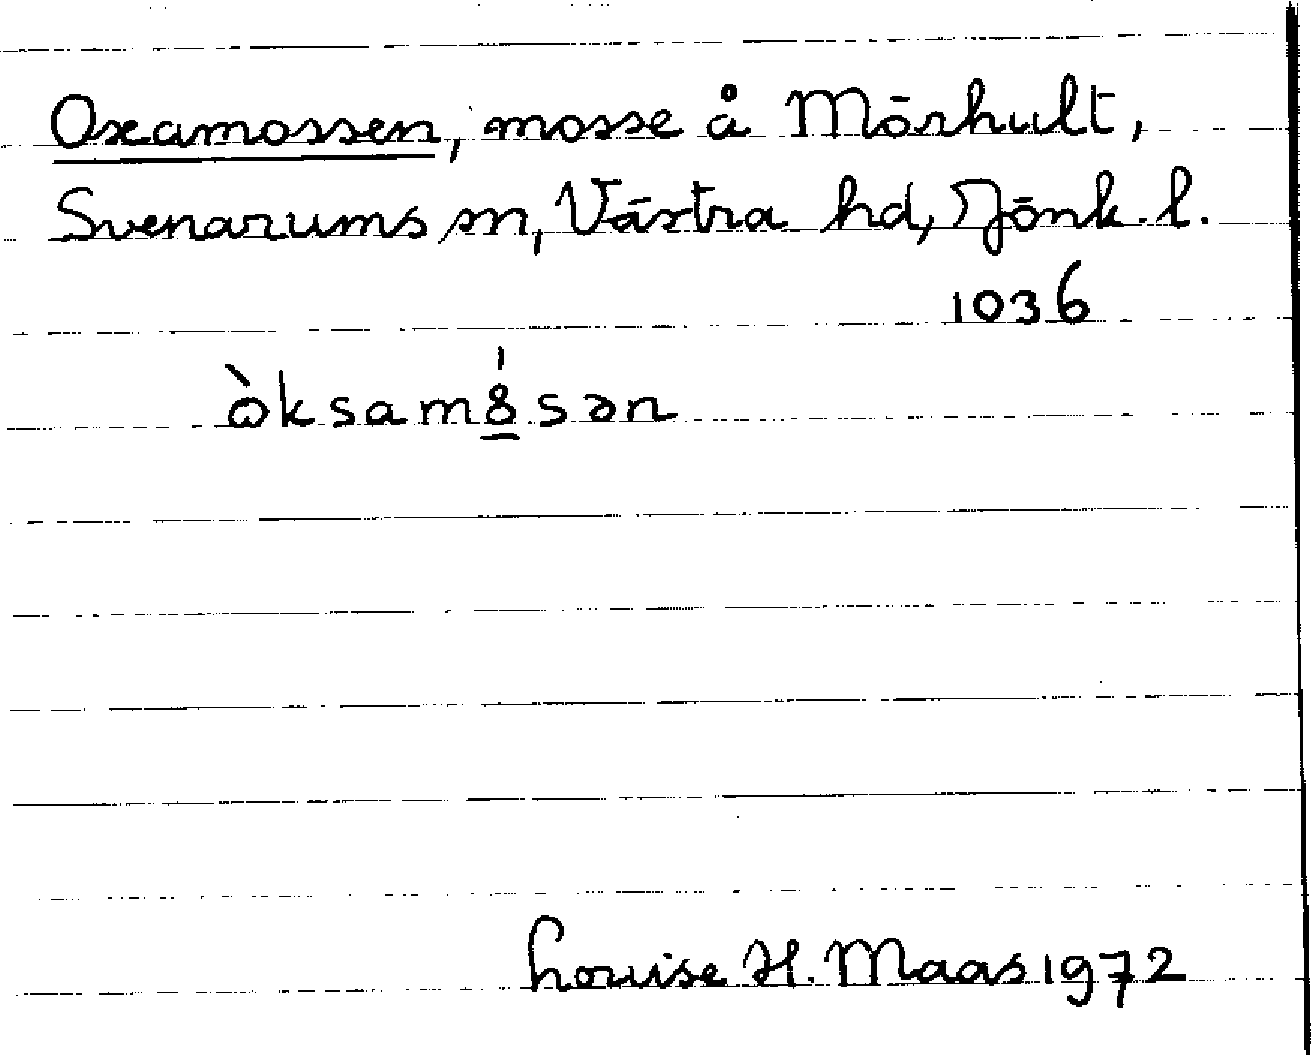 Oxamossen, mosse å Mörhult,
Svenarums sn, Västra hd, Jönk. l.
1036
òksamósən
Louise H. Maas 1972